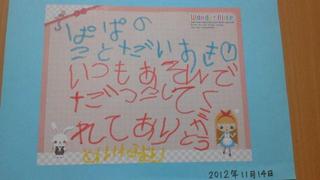 Wonder Alice
ぱぱの
ことだいすき
いつもあそんで
だっこしてく
れてありがとう
2012年11月14日